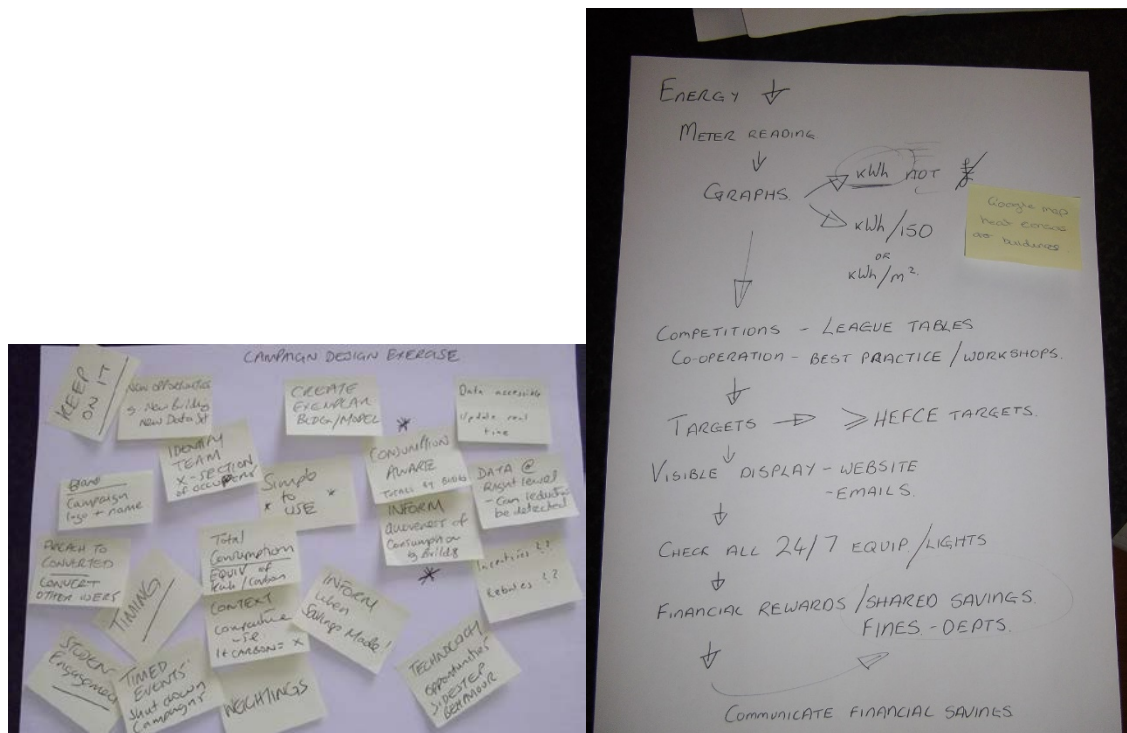 CAMPAIGN DESIGN EXERCISE
KEEP
ON IT
New opportunities
New Building
New Data Set
CREATE
EXEMPLAR
BLDG/MODEL
Data accessible
Update real
time
IDENTIFY
TEAM
X-SECTION
of OCCUPERS
Simple
to
* USE *
*
CONSUMPTION
AWARE
TOTALS BY BLDG
DATA @
Right level
- Can reduction
be detected
Brand
Campaign
logo + name
INFORM
Awareness of
Consumption
*
PREACH TO
CONVERTED
CONVERT
OTHER USERS
TIMING
Total
Consumption
EQUIV of
/carbon
Incentives ??
Rebates ??
CONTEXT
Comparative
use
1t CARBON = X
INFORM
when
Savings Made!
STUDENT
Engagement
TIMED
EVENTS
Shut down
Campaigns
WEIGHTINGS
TECHNOLOGY
opportunities
SIDESTEP
BEHAVIOUR
ENERGY ↓
METER READING
↓
GRAPHS → kWh NOT £
→ kWh/150
OR
kWh/m²
Google map
heat
buildings
↓
COMPETITIONS - LEAGUE TABLES
CO-OPERATION - BEST PRACTICE / WORKSHOPS.
↓
TARGETS → ≥ HEFCE TARGETS.
↓
VISIBLE DISPLAY - WEBSITE
- EMAILS.
↓
CHECK ALL 24/7 EQUIP/LIGHTS
↓
FINANCIAL REWARDS / SHARED SAVINGS.
FINES - DEPTS.
↓
COMMUNICATE FINANCIAL SAVINGS